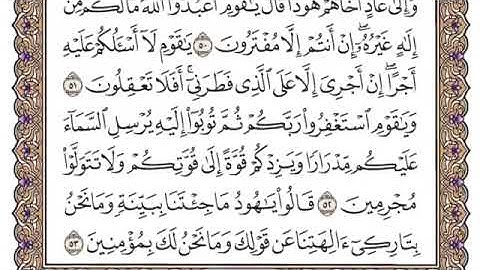 وَإِلَىٰ عَادٍ أَخَاهُمْ هُودًا قَالَ يَٰقَوْمِ ٱعْبُدُوا۟ ٱللَّهَ مَا لَكُم مِّنْ
إِلَٰهٍ غَيْرُهُۥٓ ۖ إِنْ أَنتُمْ إِلَّا مُفْتَرُونَ ٥٠ يَٰقَوْمِ لَآ أَسْـَٔلُكُمْ عَلَيْهِ
أَجْرًا ۖ إِنْ أَجْرِىَ إِلَّا عَلَى ٱلَّذِى فَطَرَنِىٓ ۚ أَفَلَا تَعْقِلُونَ ٥١
وَيَٰقَوْمِ ٱسْتَغْفِرُوا۟ رَبَّكُمْ ثُمَّ تُوبُوٓا۟ إِلَيْهِ يُرْسِلِ ٱلسَّمَآءَ
عَلَيْكُم مِّدْرَارًا وَيَزِدْكُمْ قُوَّةً إِلَىٰ قُوَّتِكُمْ وَلَا تَتَوَلَّوْا۟
مُجْرِمِينَ ٥٢ قَالُوا۟ يَٰهُودُ مَا جِئْتَنَا بِبَيِّنَةٍ وَمَا نَحْنُ
بِتَارِكِىٓ ءَالِهَتِنَا عَن قَوْلِكَ وَمَا نَحْنُ لَكَ بِمُؤْمِنِينَ ٥٣